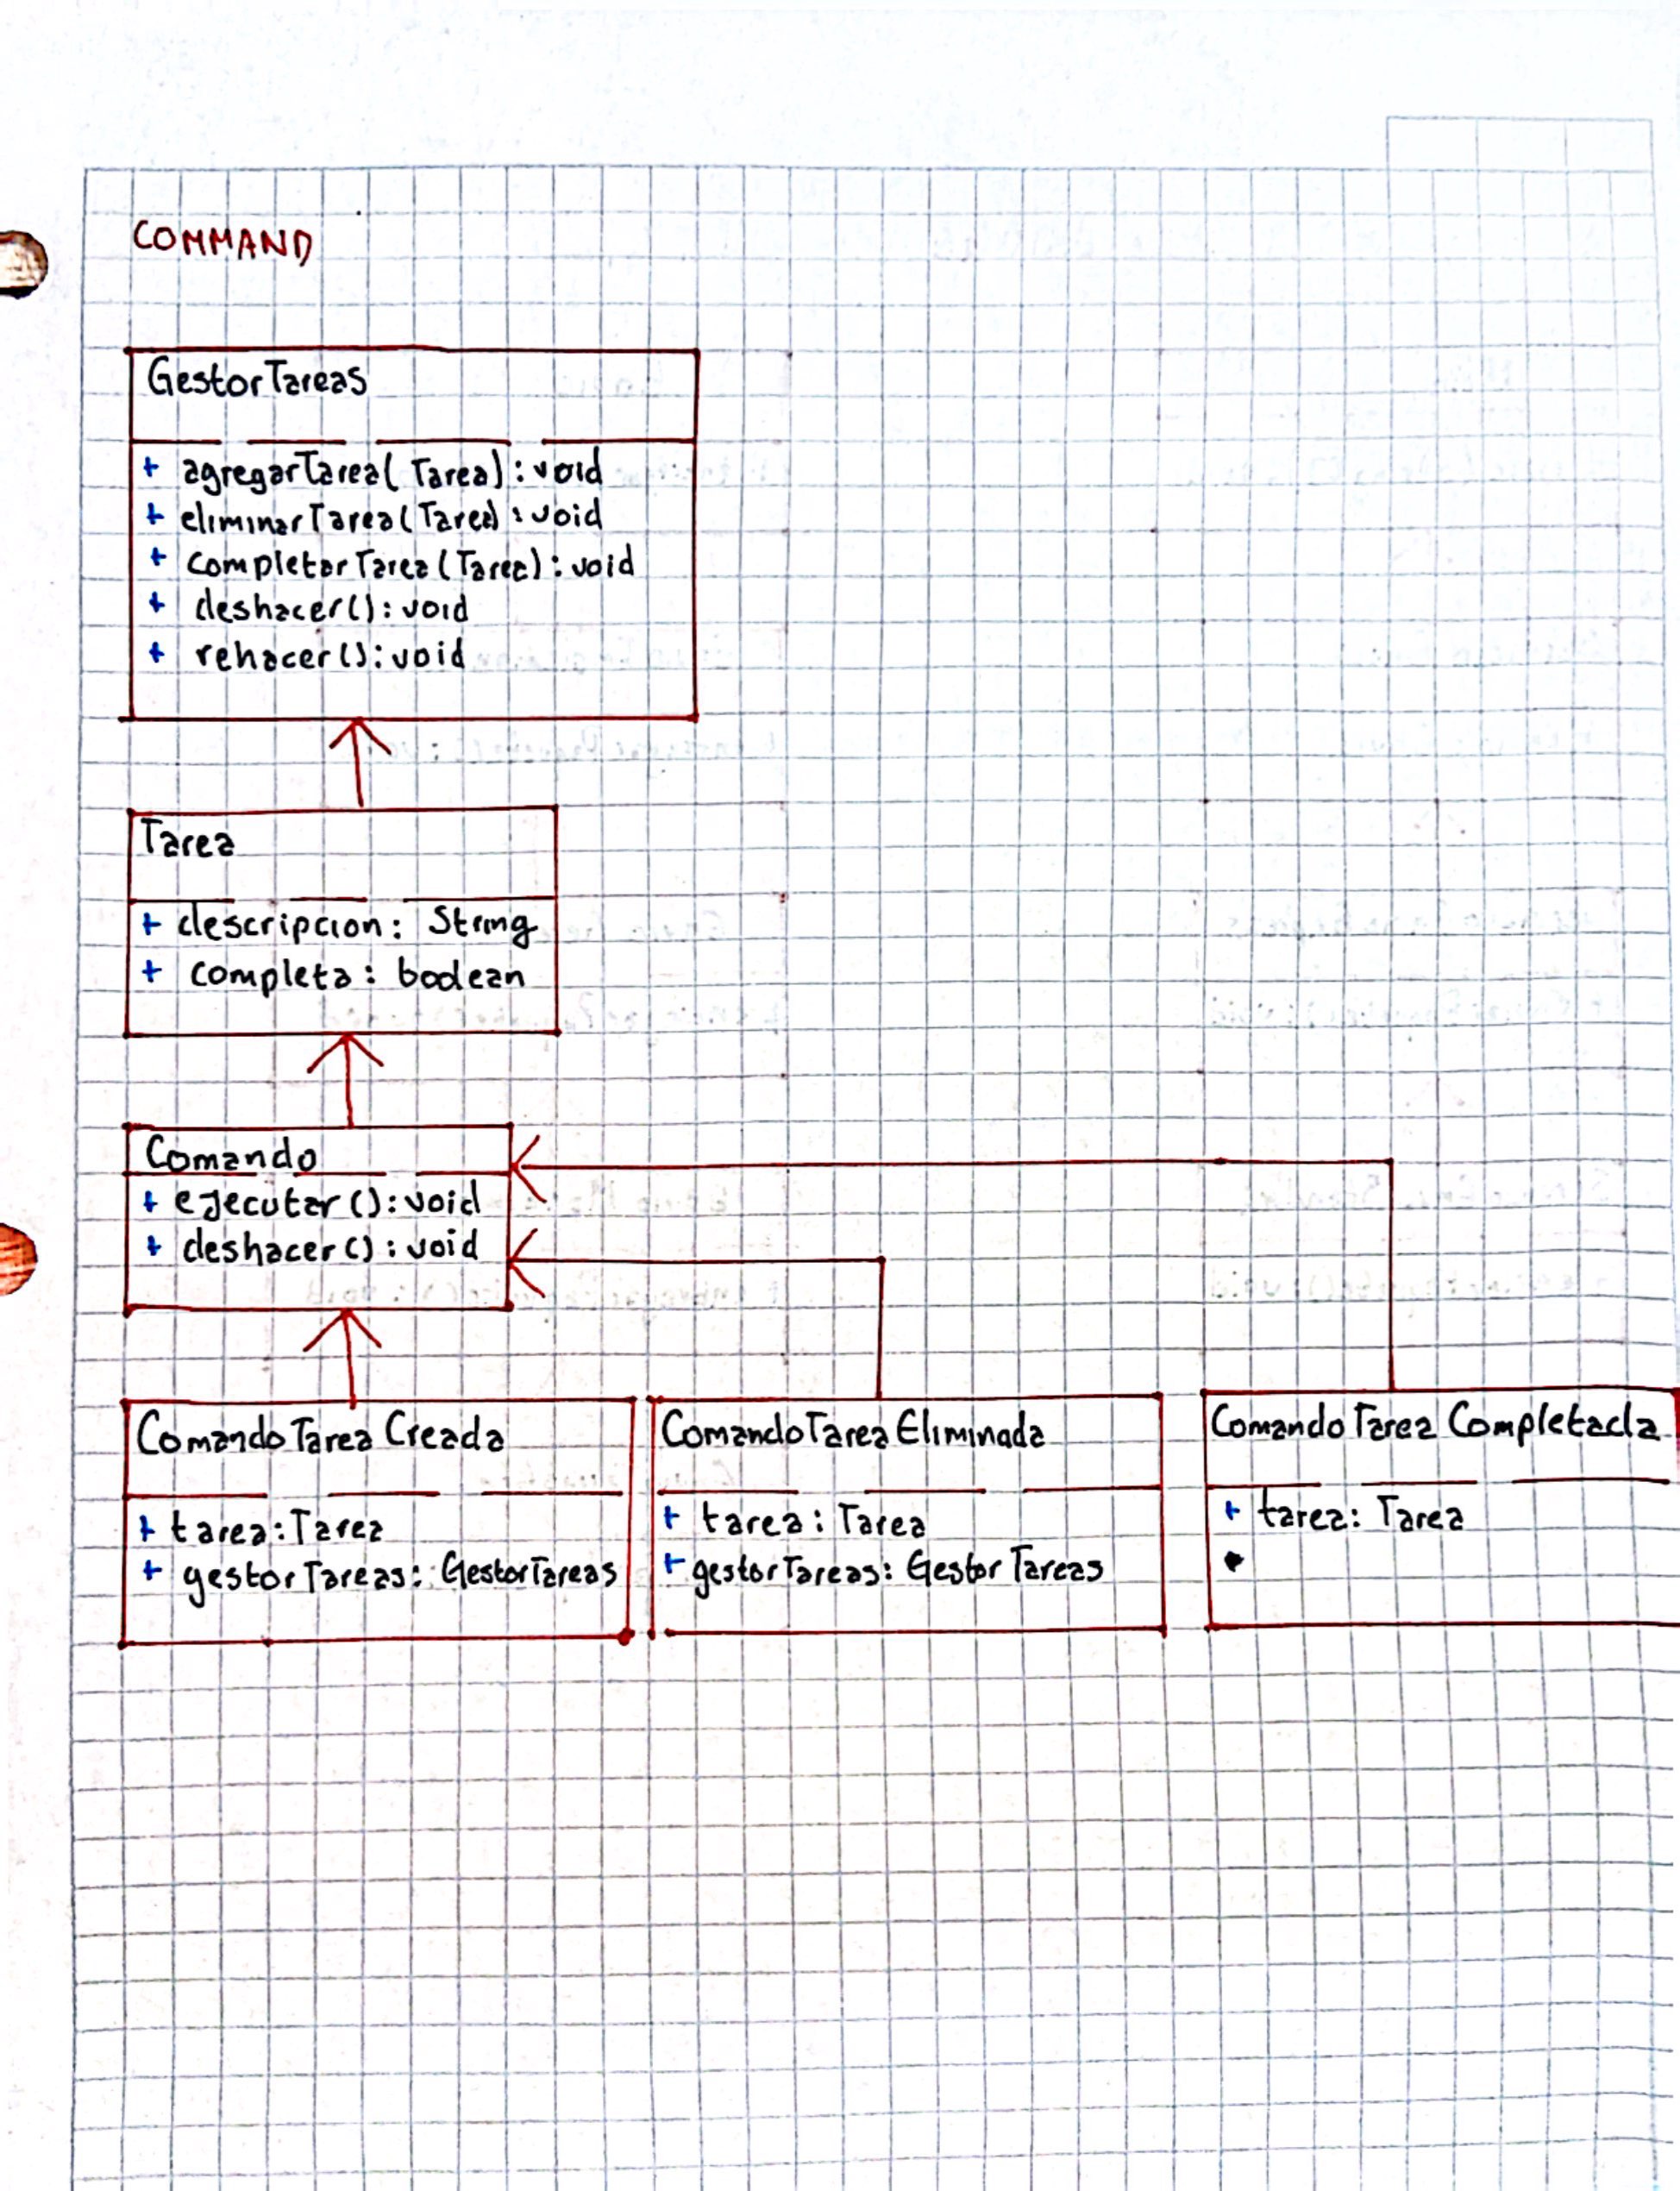 COMMAND
GestorTareas
+ agregarTarea(Tarea): void
+ eliminarTarea(Tarea): void
+ completarTarea(Tarea): void
+ deshacer(): void
+ rehacer(): void
Tarea
+ descripcion: String
+ completa: boolean
Comando
+ ejecutar(): void
+ deshacer(): void
ComandoTareaCreada
+ tarea: Tarea
+ gestorTareas: GestorTareas
ComandoTareaEliminada
+ tarea: Tarea
+ gestorTareas: GestorTareas
ComandoTareaCompletada
+ tarea: Tarea